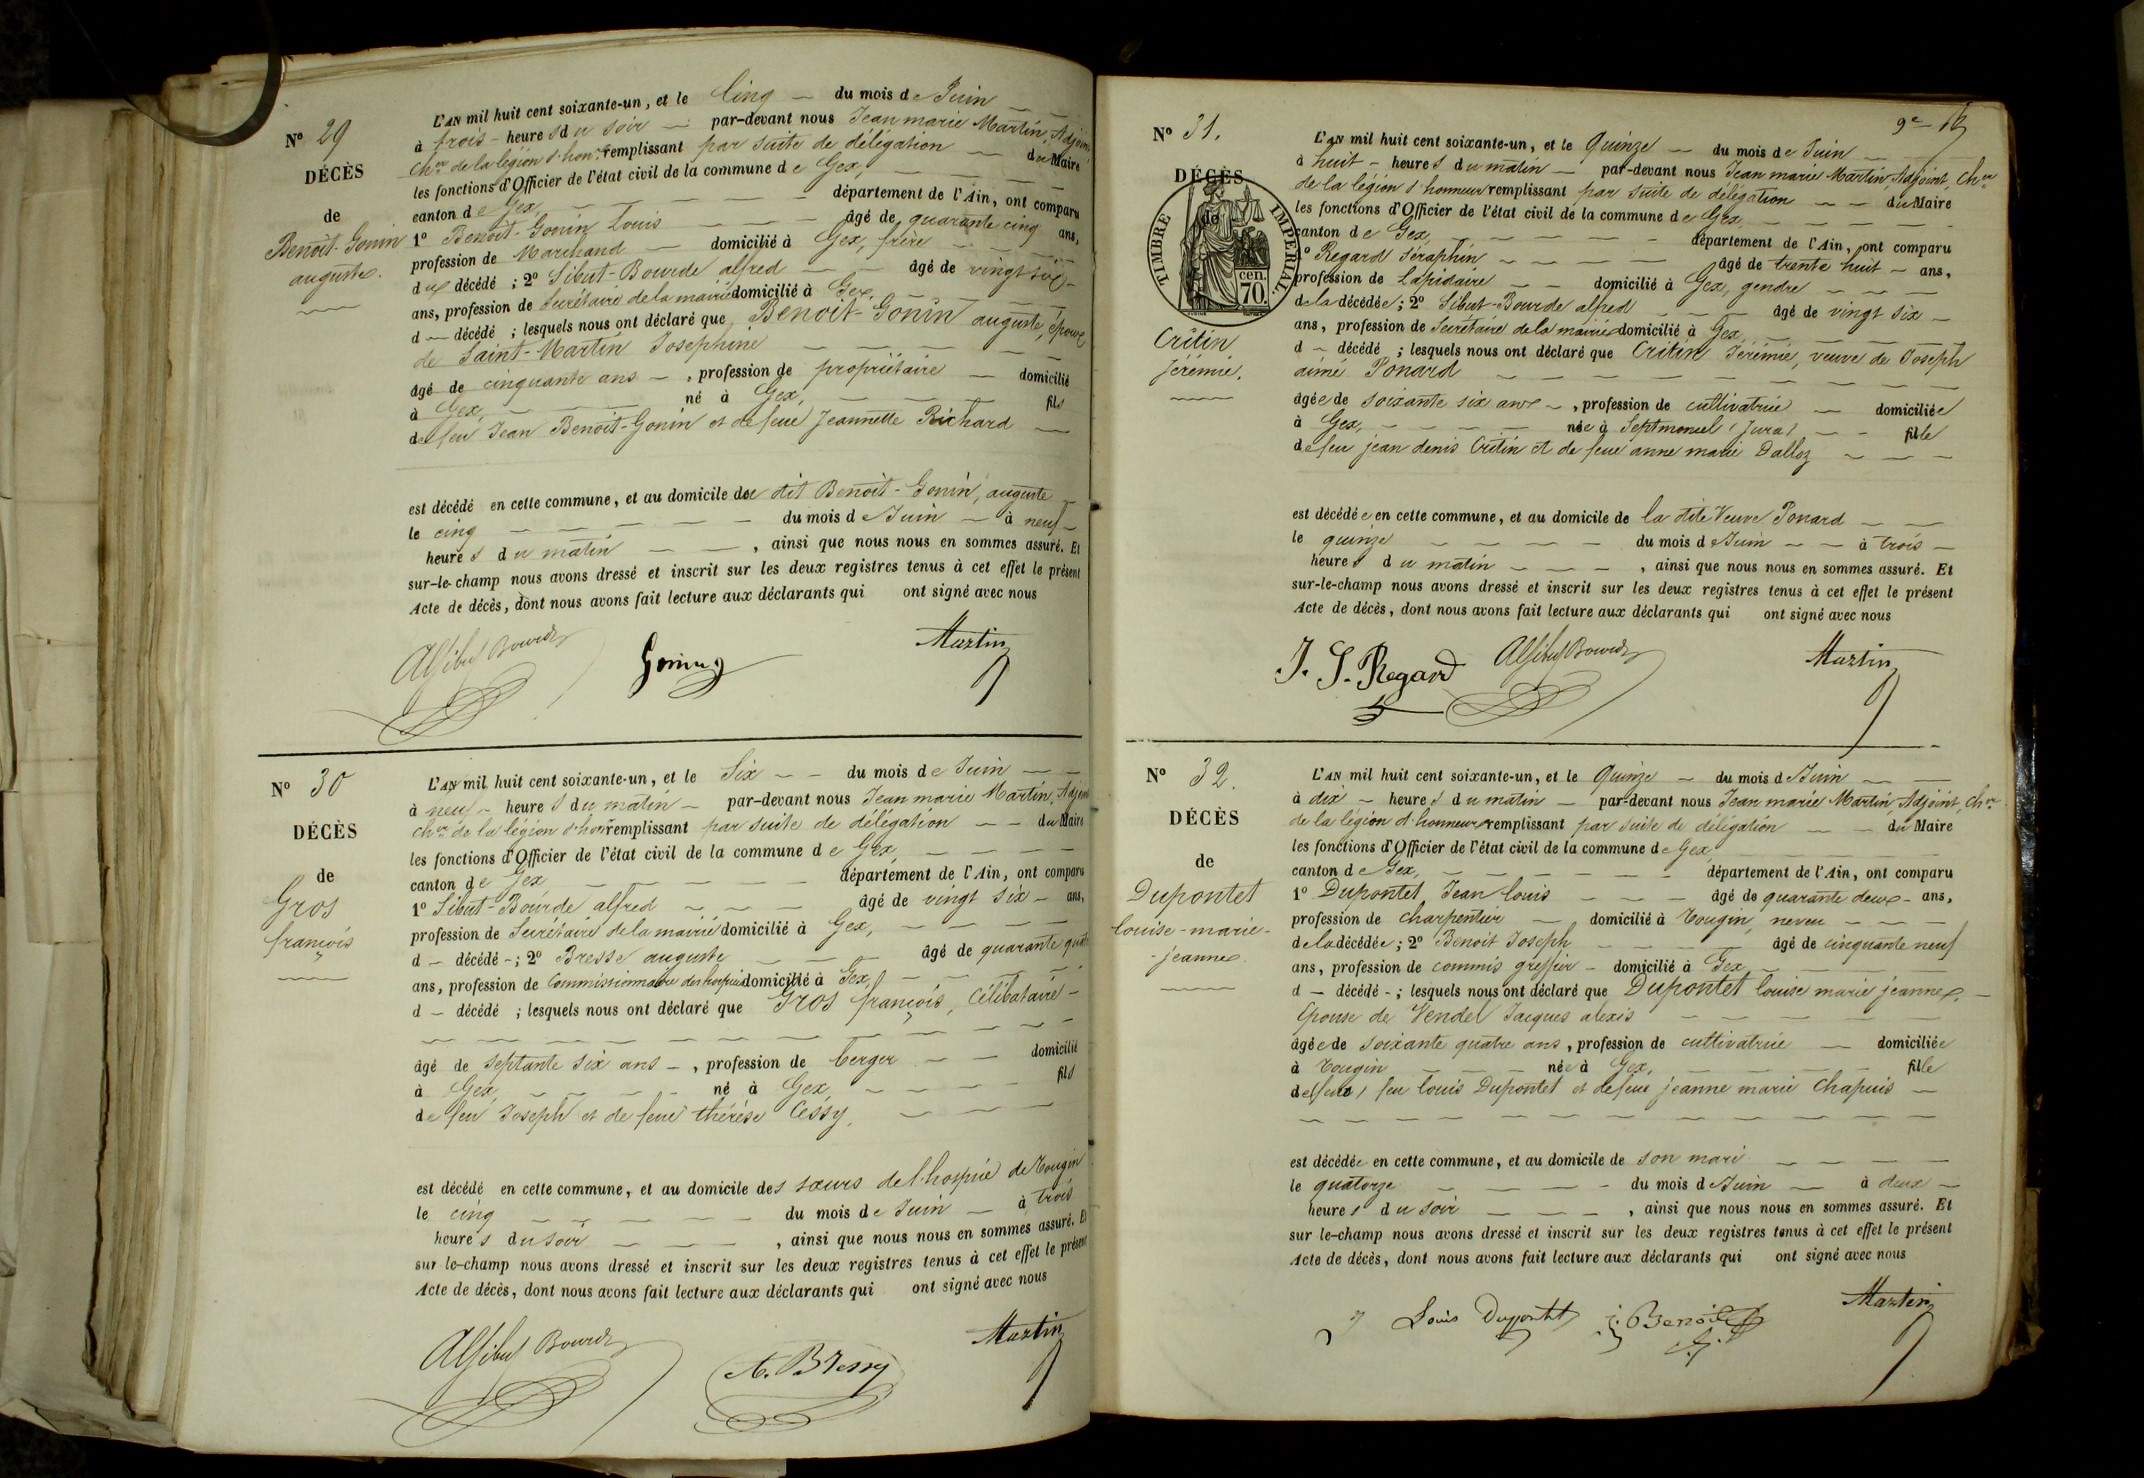 Nº 29
DÉCÈS
de
Benoît-Gonin
auguste.
L'AN mil huit cent soixante-un, et le Cinq du mois de Juin
à trois heures du soir par-devant nous Jean marie Martin, Adjoint
Cher de la légion d'hon. remplissant par suite de délégation du Maire
les fonctions d'Officier de l'état civil de la commune de Gex,
canton de Gex, département de l'Ain, ont comparu
1º Benoît-Gonin Louis âgé de quarante cinq ans,
profession de Marchand domicilié à Gex, frère
du décédé ; 2º Sibut-Bourde alfred âgé de vingt six
ans, profession de Secrétaire de la mairie domicilié à Gex,
d — décédé ; lesquels nous ont déclaré que Benoît-Gonin auguste, époux
de Saint-Martin Josephine
âgé de cinquante ans , profession de propriétaire domicilié
à Gex, né à Gex, fils
de feu Jean Benoît-Gonin et de feue Jeannette Richard
est décédé en cette commune, et au domicile du dit Benoît-Gonin, auguste
le cinq du mois de Juin à neuf
heures du matin , ainsi que nous nous en sommes assuré. Et
sur-le-champ nous avons dressé et inscrit sur les deux registres tenus à cet effet le présent
Acte de décès, dont nous avons fait lecture aux déclarants qui ont signé avec nous
ASibut Bourde Gonin Martin
Nº 30
DÉCÈS
de
Gros
françois
L'AN mil huit cent soixante-un, et le Six du mois de Juin
à neuf heures du matin par-devant nous Jean marie Martin, Adjoint
Cher de la légion d'hon. remplissant par suite de délégation du Maire
les fonctions d'Officier de l'état civil de la commune de Gex,
canton de Gex, département de l'Ain, ont comparu
1º Sibut-Bourde alfred âgé de vingt six ans,
profession de Secrétaire de la mairie domicilié à Gex,
d — décédé - ; 2º Bresse auguste âgé de quarante quatre
ans, profession de Commissionnaire des hospices domicilié à Gex,
d — décédé ; lesquels nous ont déclaré que Gros françois, Célibataire
âgé de septante six ans , profession de berger domicilié
à Gex, né à Gex, fils
de feu Joseph et de feue thérèse Cessy,
est décédé en cette commune, et au domicile des sœurs de l'hospice de Tougin
le cinq du mois de Juin à trois
heures du soir , ainsi que nous nous en sommes assuré. Et
sur le-champ nous avons dressé et inscrit sur les deux registres tenus à cet effet le présent
Acte de décès, dont nous avons fait lecture aux déclarants qui ont signé avec nous
ASibut Bourde A. Bressy Martin
9e
Nº 31.
DÉCÈS
de
TIMBRE IMPÉRIAL
cen.
70.
Critin
Jérémie.
L'AN mil huit cent soixante-un, et le Quinze du mois de Juin
à huit heures du matin par-devant nous Jean marie Martin, Adjoint, Cher
de la légion d'honneur remplissant par suite de délégation du Maire
les fonctions d'Officier de l'état civil de la commune de Gex,
canton de Gex, département de l'Ain, ont comparu
1º Regard Séraphin âgé de trente huit ans,
profession de Lapidaire domicilié à Gex, gendre
de la décédée ; 2º Sibut-Bourde alfred âgé de vingt six
ans, profession de Secrétaire de la mairie domicilié à Gex,
d — décédé ; lesquels nous ont déclaré que Critin Jérémie, veuve de Joseph
aimé Ponard
âgée de soixante six ans , profession de cultivatrice domiciliée
à Gex, née à Septmoncel (Jura) fille
de feu jean denis Critin et de feue anne marie Dalloz
est décédée en cette commune, et au domicile de la dite Veuve Ponard
le quinze du mois de Juin à trois
heures du matin , ainsi que nous nous en sommes assuré. Et
sur-le-champ nous avons dressé et inscrit sur les deux registres tenus à cet effet le présent
Acte de décès, dont nous avons fait lecture aux déclarants qui ont signé avec nous
J. S. Regard ASibut Bourde Martin
Nº 32.
DÉCÈS
de
Dupontet
louise-marie-
-jeanne.
L'AN mil huit cent soixante-un, et le Quinze du mois de Juin
à dix heures du matin par-devant nous Jean marie Martin, Adjoint, Cher
de la légion d'honneur remplissant par suite de délégation du Maire
les fonctions d'Officier de l'état civil de la commune de Gex,
canton de Gex, département de l'Ain, ont comparu
1º Dupontet Jean louis âgé de quarante deux ans,
profession de charpentier domicilié à Tougin, neveu
de la décédée ; 2º Benoit Joseph âgé de cinquante neuf
ans, profession de commis greffier domicilié à Gex
d — décédé - ; lesquels nous ont déclaré que Dupontet louise marie jeanne,
Epouse de Vendel Jacques alexis
âgée de soixante quatre ans , profession de cultivatrice domiciliée
à Tougin née à Gex, fille
de feu louis Dupontet et de feue jeanne marie Chapuis
est décédée en cette commune, et au domicile de son mari
le quatorze du mois de Juin à deux
heures du soir , ainsi que nous nous en sommes assuré. Et
sur le-champ nous avons dressé et inscrit sur les deux registres tenus à cet effet le présent
Acte de décès, dont nous avons fait lecture aux déclarants qui ont signé avec nous
Louis Dupontet j. Benoit Martin